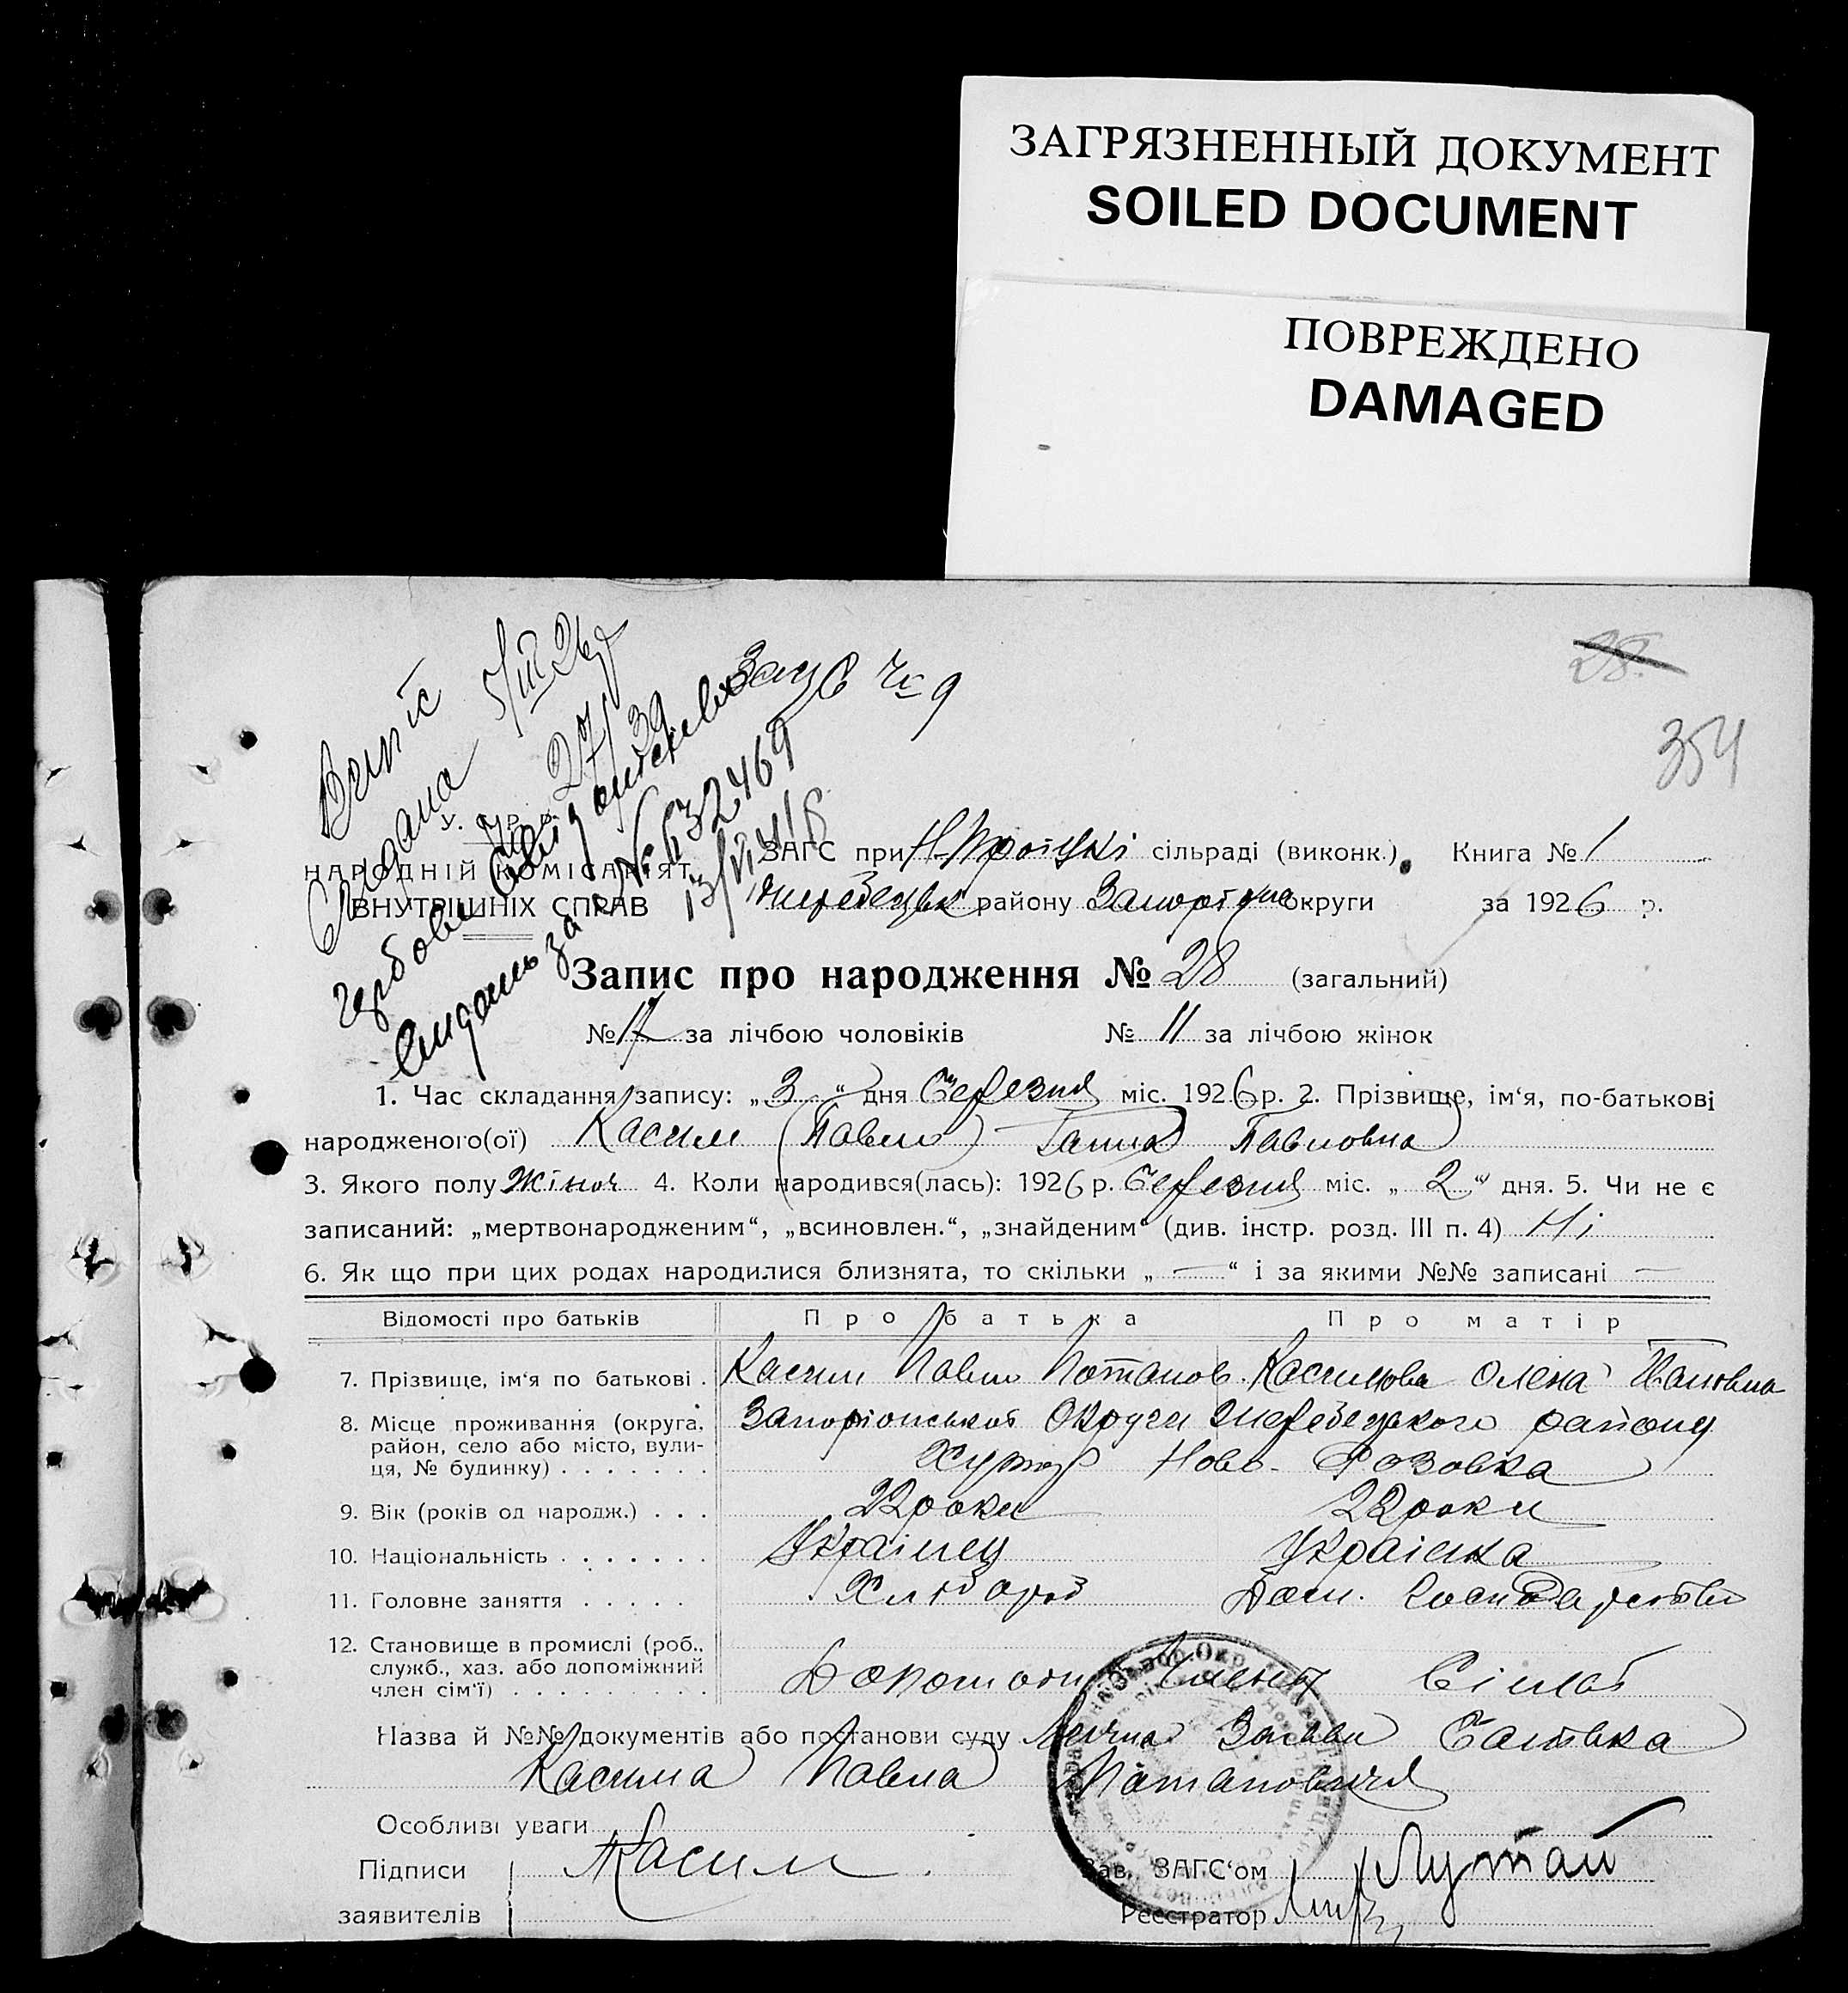 ЗАГРЯЗНЕННЫЙ ДОКУМЕНТ
SOILED DOCUMENT
ПОВРЕЖДЕНО
DAMAGED
28.
354
5/III 26 р
27/
№ 632469
У. С. Р. Р.
НАРОДНІЙ КОМІСАРІЯТ
ВНУТРІШНІХ СПРАВ
ЗАГС при Н. Троіцкі сільраді (виконк.) Книга № 1
Жеребецьк району Запоріжжя округи за 1926 р.
Запис про народження № 28 (загальний)
№ 17 за лічбою чоловіків № 11 за лічбою жінок
1. Час складання запису: „3“ дня Березня міс. 1926 р. 2. Прізвище, ім‘я, по-батькові
народженого(ої) Касим (Павло) Ганна Павловна
3. Якого полу Жіноч 4. Коли народився(лась): 1926 р. Березня міс. „2“ дня. 5. Чи не є
записаний: „мертвонародженим“, „всиновлен.“, „знайденим“ (див. інстр. розд. III п. 4) Ні
6. Як що при цих родах народилися близнята, то скільки „ — “ і за якими №№ записані —
Відомості про батьків Про батька Про матір
7. Прізвище, ім‘я по батькові . Касим Павло Потапов. Касимова Олена Івановна
8. Місце проживання (округа, район, село або місто, вулиця, № будинку) . . . . . . . Запоріонськоі Округи Жеребецького району
Хутор Ново-Розовка
9. Вік (років од народж.) . . . 22 роки 22 роки
10. Національність . . . . . . . Украінец Украінка
11. Головне заняття . . . . . Хлібороб Дом. Господарство
12. Становище в промислі (роб., служб., хаз. або допоміжний член сім‘ї) . . . . . . . . . Допоможн Члены Сімъі
Назва й №№ документів або постанови суду Лична Заява Батька
Касима Павла Потаповича
Особливі уваги
Підписи Касим Зав. ЗАГС‘ом Лутай
заявителів Реєстратор